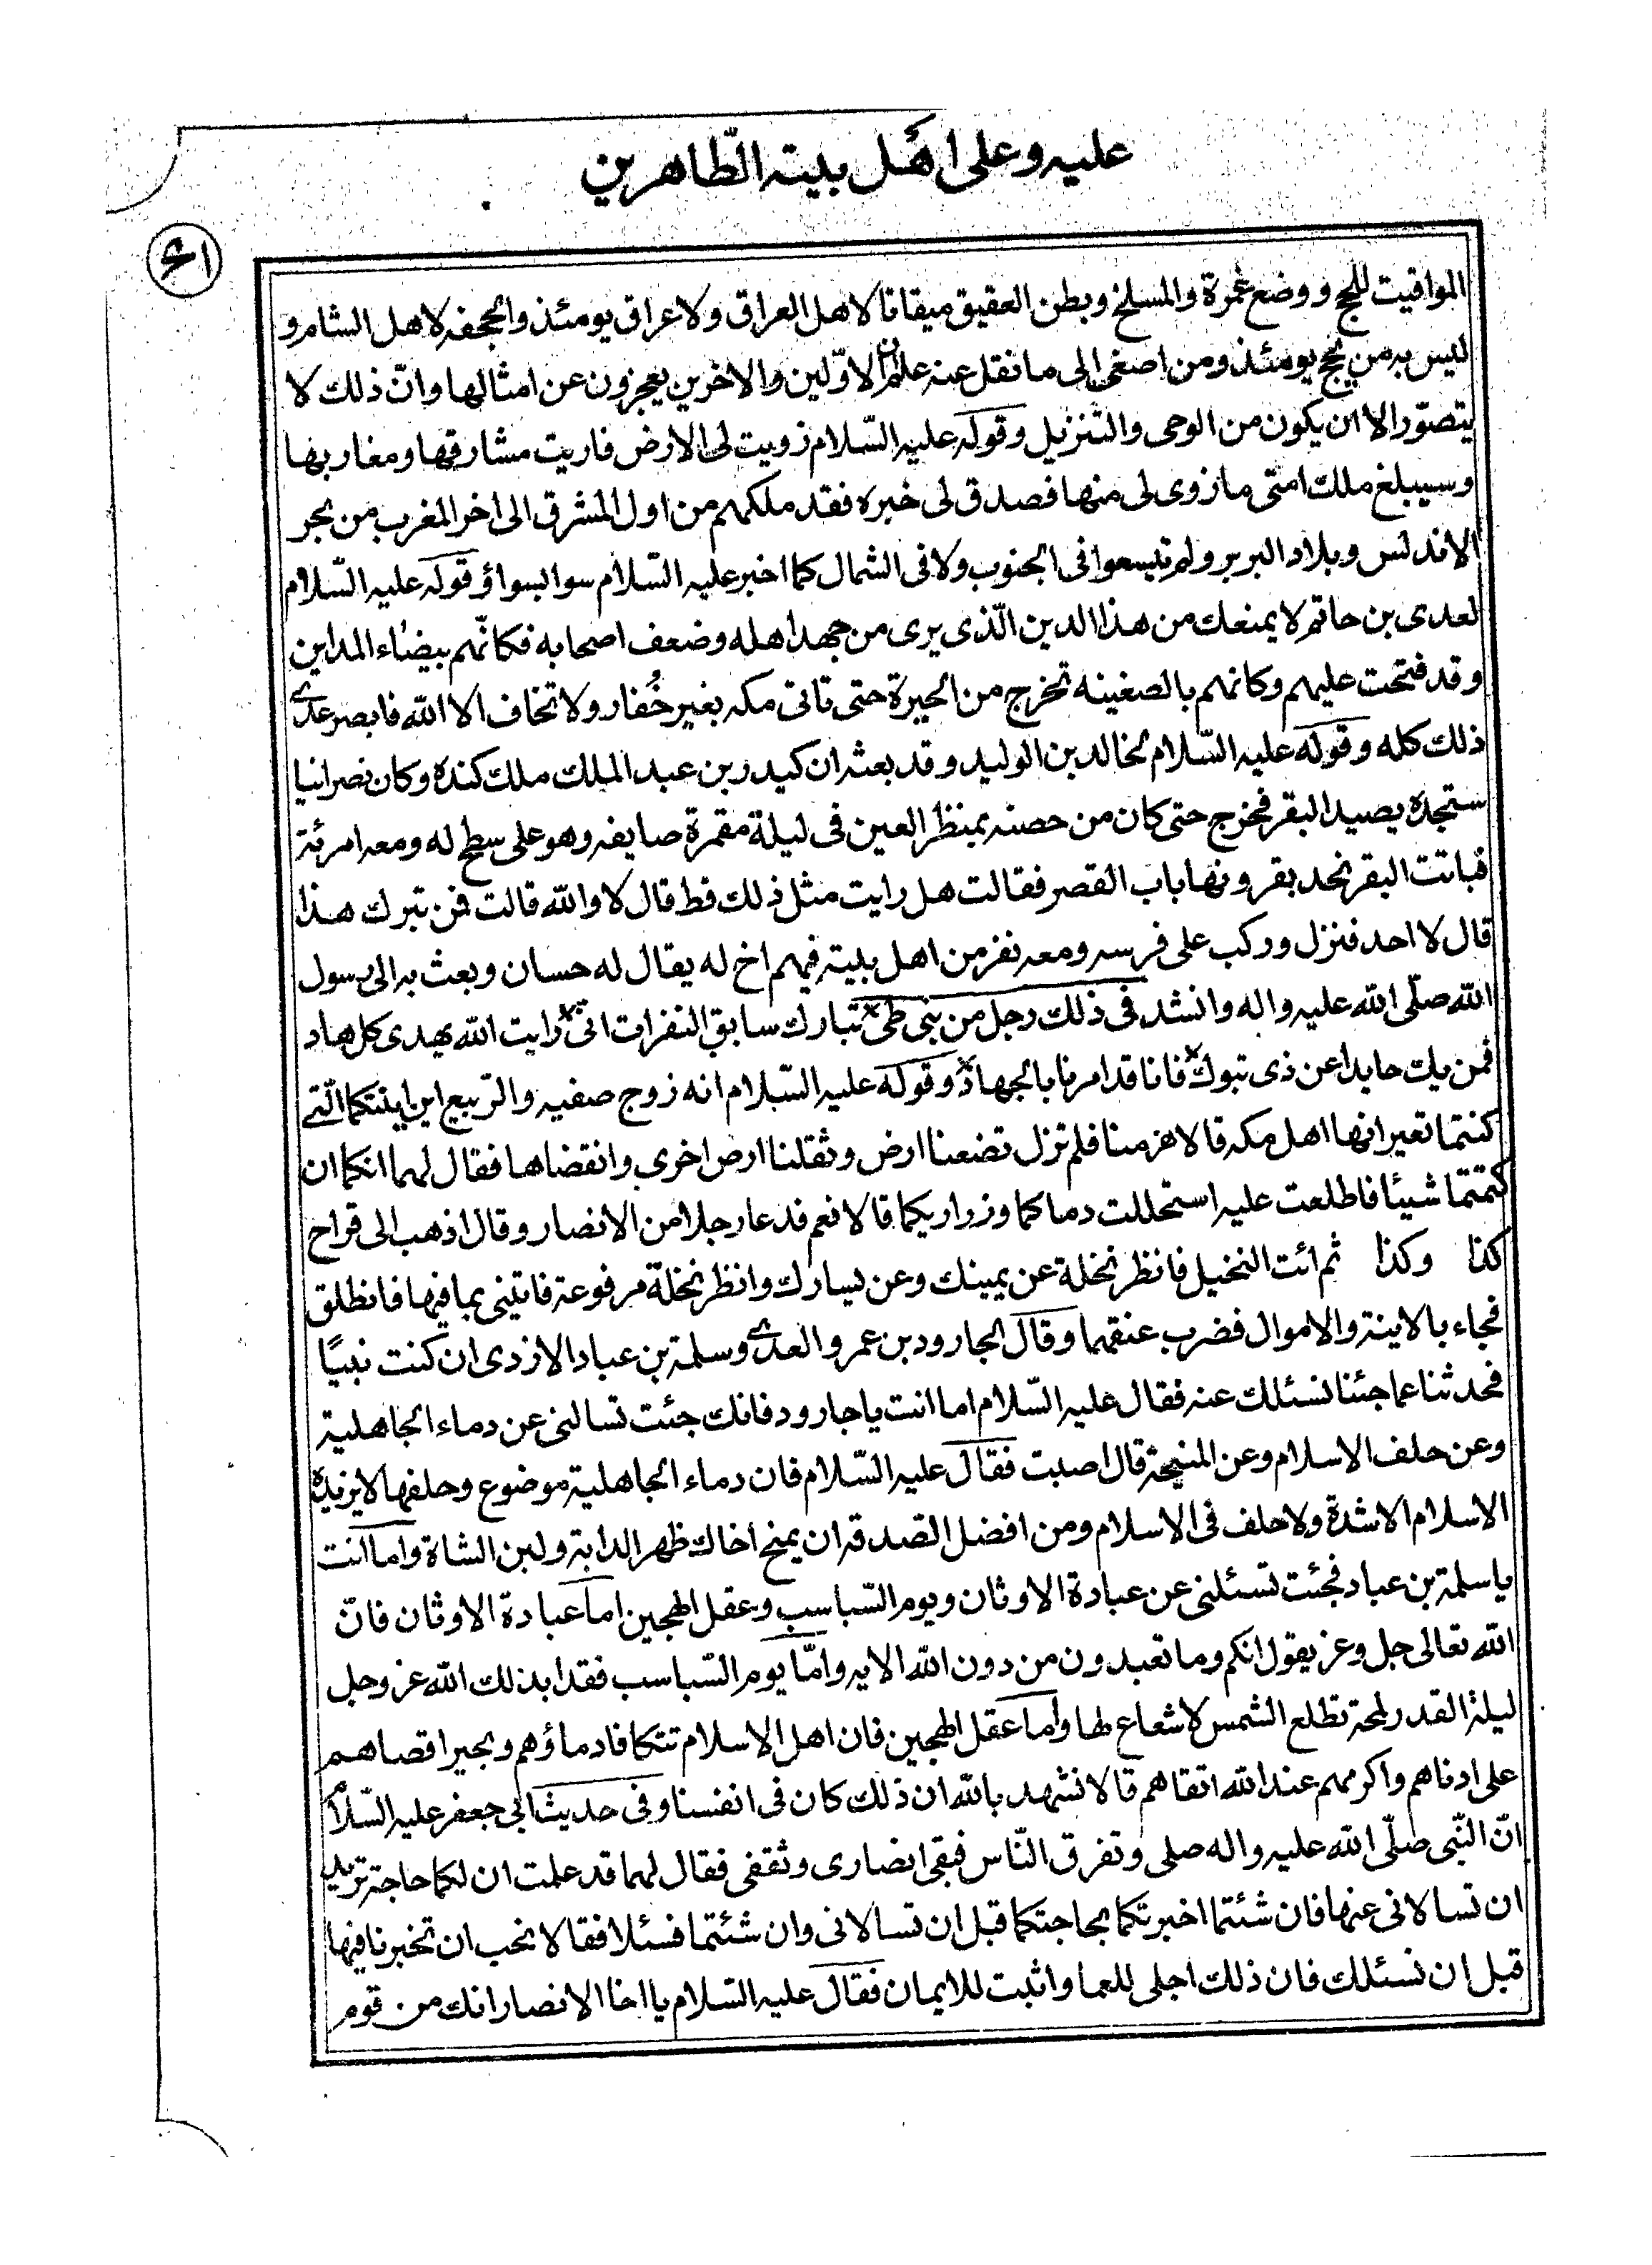 عليه وعلى اهل بيته الطّاهرين
المواقيت للحج ووضع غمرة والمسلخ وبطن العقيق ميقاتا لاهل العراق ولا عراق يومئذ والجحفه لاهل الشام و
ليس به من يحج يومئذ ومن اصغى الى ما نقل عنه علم ان الاوّلين والاخرين يعجزون عن امثالها وانّ ذلك لا
يتصوّر الا ان يكون من الوحى والتنزيل وقوله عليه السّلام زويت لى الارض فاريت مشارقها ومغاربها
وسيبلغ ملك امتى ما زوى لى منها فصدق لى خبره فقد ملكهم من اول المشرق الى اخر المغرب من بحر
الاندلس وبلاد البربر ولم تيسعوا فى الجنوب ولا فى الشمال كما اخبر عليه السّلام سوا بسواؤ وقوله عليه السّلام
لعدى بن حاتم لا يمنعك من هذا الدين الّذى يرى من جهد اهله وضعف اصحابه فكانّهم ببيضاء المداين
وقد فتحت عليهم وكانهم بالضغينه تخرج من الحيرة حتى تاتى مكه بغير خُفار ولا تخاف الا الله فابصر عدى
ذلك كله وقوله عليه السّلام لخالد بن الوليد وقد بعثه ان كيدر بن عبد الملك ملك كنده وكان نصرانيا
ستجده يصيد البقر فخرج حتى كان من حصنه بمنظر العين فى ليلة مقمرة صايفه وهو على سطح له ومعه امرئة
فباتت البقر تخد بقرونها باب القصر فقالت هل رايت مثل ذلك قط قال لا والله قالت فمن تبرك هذا
قال لا احد فنزل وركب على فرسه ومعه نفر من اهل بيته فيهم اخ له يقال له حسان وبعث به الى رسول
الله صلّى الله عليه واله وانشد فى ذلك رجل من بنى طى تبارك سابق النفرات انى رايت الله يهدى كل هاد
فمن يك حايدا عن ذى تبوك فانا قد امرنا بالجهاد وقوله عليه السّلام انه زوج صفيه والربيع اين ابنتكما الّتى
كنتما تعيرانها اهل مكه قالا هزمنا فلم تزل تضعنا ارض وثقلنا ارض اخرى وانقضاها فقال لهما انكما ان
كتمتما شيئا فاطلعت عليه استحللت دماكما وزراريكما قالا نعم فدعا رجلا من الانصار وقال اذهب الى قراح
كذا وكذا ثم ائت النخيل فانظر نخلة عن يمينك وعن يسارك وانظر نخلة مرفوعة فاتينى بما فيها فانطلق
فجاء بالاينة والاموال فضرب عنقهما وقال الجارود بن عمرو العدى وسلمة بن عباد الازدى ان كنت نبيًا
فحدثنا عما جئنا نسئلك عنه فقال عليه السّلام اما انت يا جارود فانك جئت تسالنى عن دماء الجاهلية
وعن حلف الاسلام وعن المنيحة قال اصبت فقال عليه السّلام فان دماء الجاهلية موضوع وحلفها لا يزيده
الاسلام الا شدة ولا حلف فى الاسلام ومن افضل الصدقه ان يمنح اخاك ظهر الدابة ولبن الشاة واما انت
يا سلمة بن عباد فجئت تسئلنى عن عبادة الاوثان ويوم السّباسب وعقل الهجين اما عبادة الاوثان فانّ
الله تعالى جل وعز يقول انكم وما تعبدون من دون الله الايه وامّا يوم السّباسب فقد ابدلك الله عز وجل
ليلة القدر لمحة تطلع الشمس لا شعاع لها واما عقل الهجين فان اهل الاسلام تتكافا دماؤهم ويجير اقصاهم
على ادناهم واكرمهم عند الله اتقاهم قالا نشهد بالله ان ذلك كان فى انفسنا وفى حديث ابى جعفر عليه السّلام
انّ النّبى صلّى الله عليه واله صلى وتفرق النّاس فبقى انصارى وثقفى فقال لهما قد علمت ان لكما حاجة تريد
ان تسالانى عنها فان شئتما اخبرتكما بحاجتكما قبل ان تسالانى وان شئتما فسئلا فقالا نحب ان تخبرنا فيها
قبل ان نسئلك فان ذلك اجلى للعما واثبت للايمان فقال عليه السّلام يا اخا الانصار انك من قوم